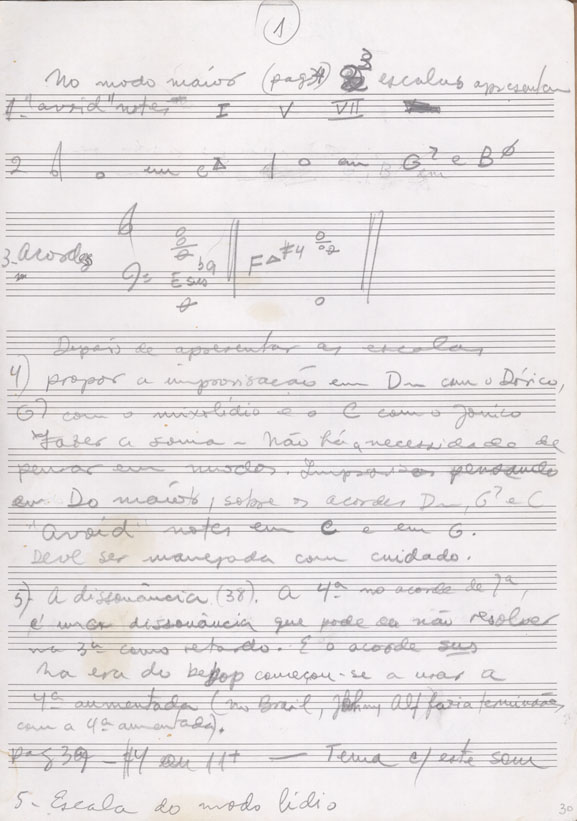 1
No modo maior (pag 34) 3 escalas apresentam
1. "avoid" notes I V VII
2 em C∆ em G7 e Bø
3. Acordes Esus b9 F∆#4
Depois de apresentar as escalas
4) propor a improvisação em Dm com o Dórico,
G7 com o mixolídio e o C com o Jonico
Fazer a soma - Não há necessidade de
pensar em modos. Improvisar pensando
em Do maior, sobre os acordes Dm, G7 e C
"avoid" notes em C e em G.
Deve ser manejada com cuidado.
5) A dissonância (38). A 4ª no acorde de 7ª,
é uma dissonância que pode ou não resolver
na 3ª como retardo. É o acorde sus
Na era do bebop começou-se a usar a
4ª aumentada (no Brasil, Johny Alf fazia terminações
com a 4ª aumentada).
pag 39 - #4 ou 11+ — Tema c/ este som
5 - Escala do modo lídio
30